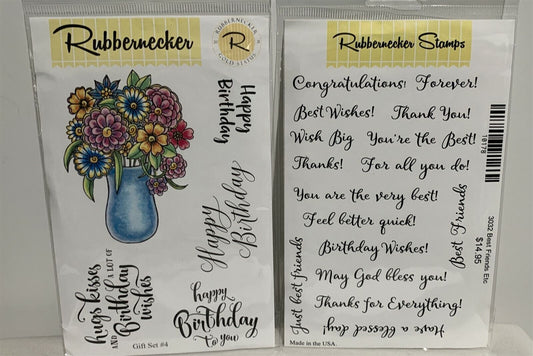 Rubbernecker
RUBBERNECKER
R
GOLD STAMPS
Happy
Birthday
Happy
Birthday
hugs kisses
AND A LOT OF
Birthday
wishes
happy
Birthday
to you
Gift Set #4
Rubbernecker Stamps
Congratulations! Forever!
Best Wishes! Thank You!
Wish Big You're the Best!
Thanks! For all you do!
You are the very best!
Feel better quick!
Birthday Wishes!
May God bless you!
Thanks for Everything!
Have a blessed day!
Just best friends
Best Friends
Made in the USA.
10178
3032 Best Friends Etc
$14.95